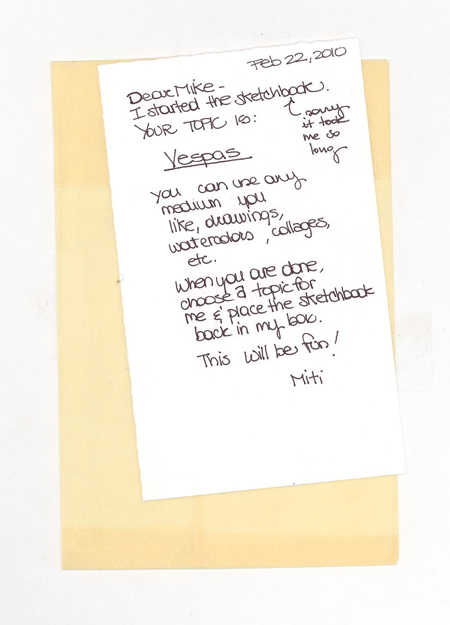 Feb 22, 2010
Dear Mike -
I started the sketchbook.
YOUR TOPIC IS:
sorry
it took
me so
long
Vespas
you can use any
medium you
like, drawings,
watercolors, collages,
etc.
When you are done,
choose a topic for
me & place the sketchbook
back in my box.
This will be fun!
Miti